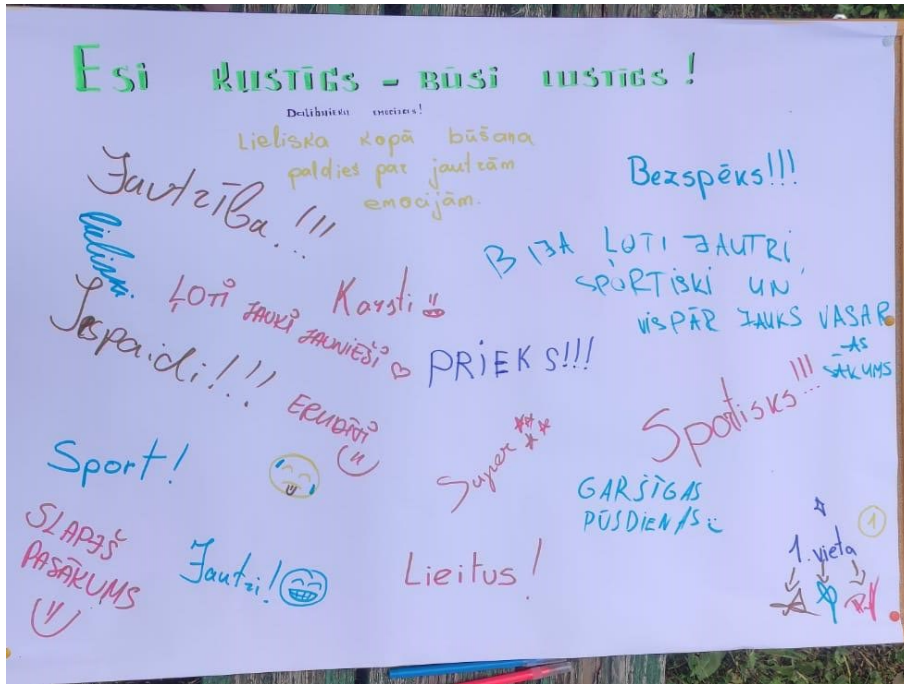 Esi KUSTĪGS - BŪSI LUSTĪGS!
Dalībnieku emocijas!
Lieliska kopā būšana
paldies par jautrām
emocijām.
Jautrība!!!
Bezspēks!!!
lieliski
BIJA ĻOTI JAUTRI
SPORTISKI UN
VISPĀR JAUKS VASAR
AS
SĀKUMS
ĻOTI
JAUKI
JAUNIEŠI
Karsti
Iespaidi!!!
PRIEKS!!!
ERUDĪTI
Spotisks!!!
Super
Sport!
GARŠĪGAS
PŪSDIENAS
SLAPJŠ
PASĀKUMS
Jautri!
Lieitus!
1
1. vieta
A